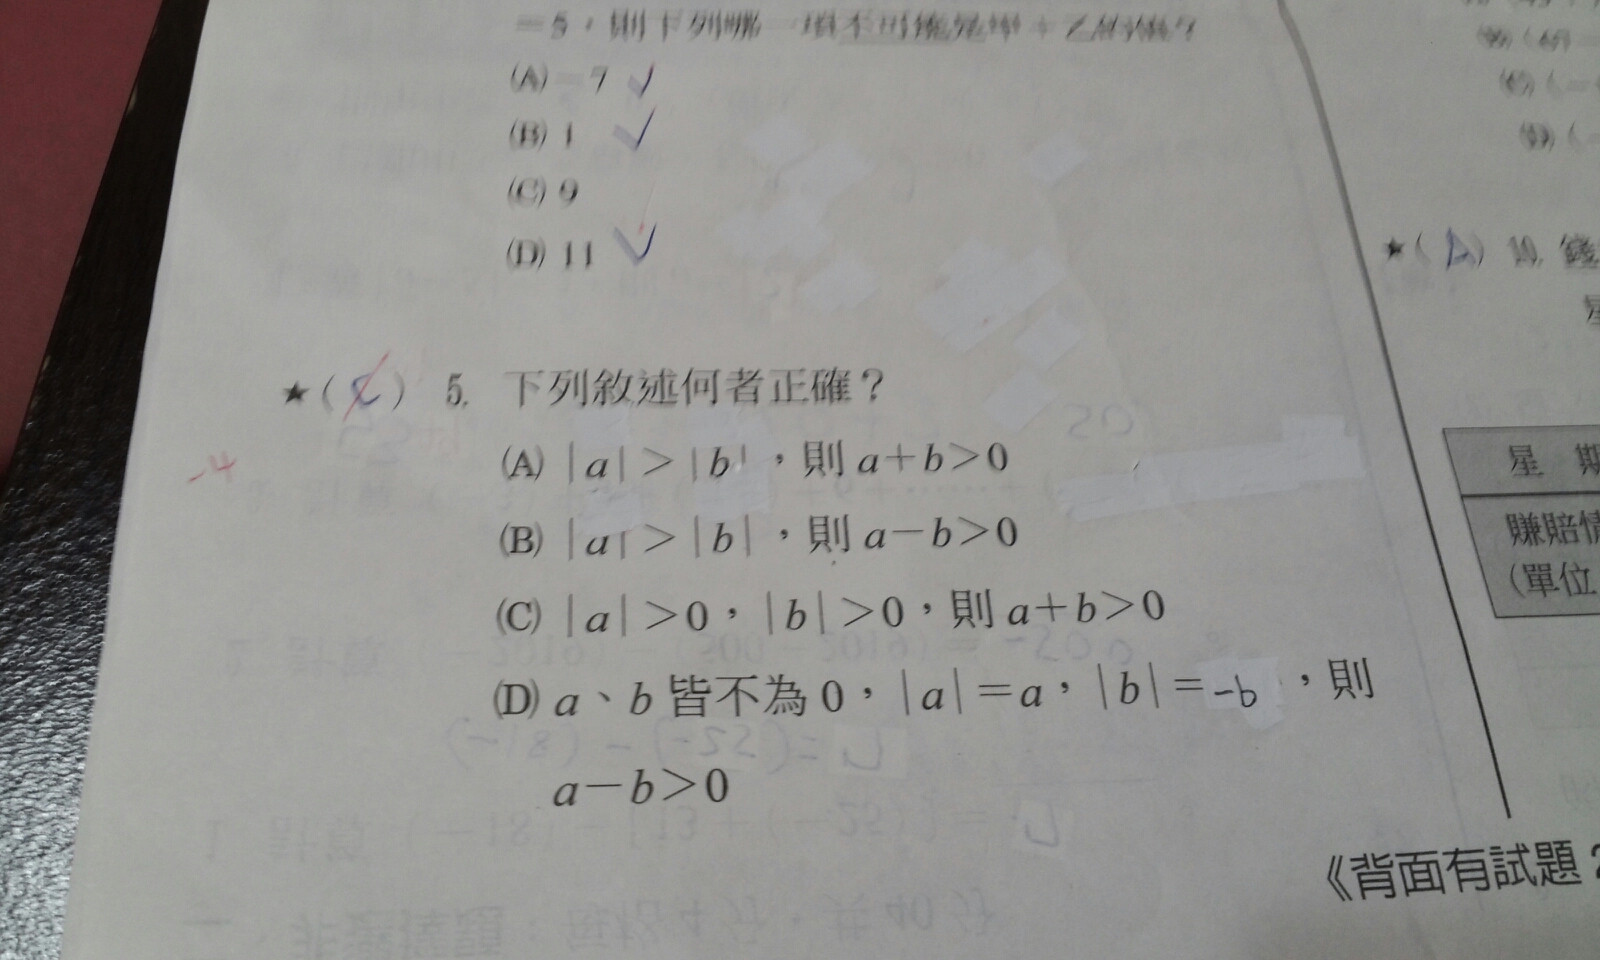 =5，則下列哪一項不可能是甲+乙的值？
(A) -7 ✓
(B) 1 ✓
(C) 9
(D) 11 ✓
★( A ) 10. 錢
★( C ) 5. 下列敘述何者正確？
-4
(A) |a|>|b|，則 a+b>0
(B) |a|>|b|，則 a-b>0
(C) |a|>0，|b|>0，則 a+b>0
(D) a、b 皆不為 0，|a|=a，|b|=-b，則
a-b>0
星 期
賺賠情
(單位
《背面有試題